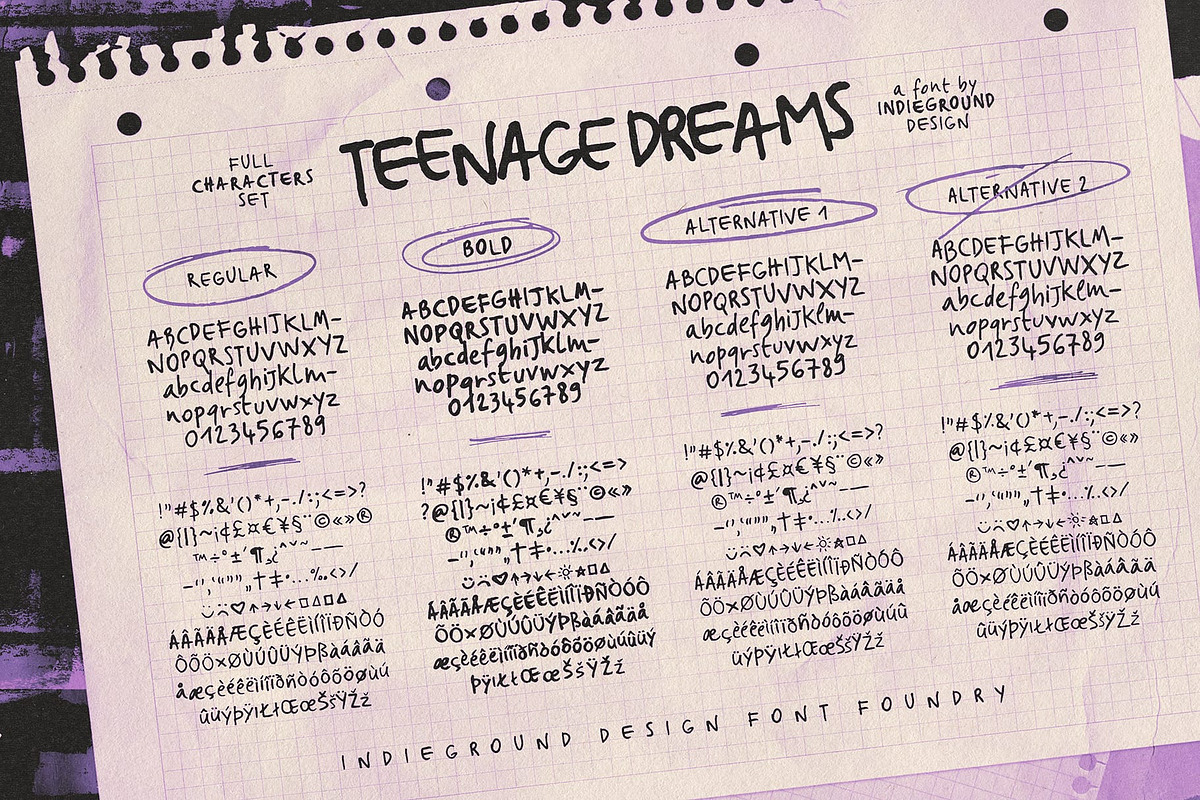 FULL
CHARACTERS
SET
TEENAGE DREAMS
a font by
INDIEGROUND
DESIGN
REGULAR
ABCDEFGHIJKLM-
NOPQRSTUVWXYZ
abcdefghijklm-
nopqrstuvwxyz
0123456789
!"#$%&'()*+,-./:;<=>?
@{|}~¡¢£¤€¥§¨©«»®
™÷°±´¶¸¿^ˇ~–—
–'‚"""„†‡•…‰‹›/
ÁÂÃÄÅÆÇÈÉÊËÌÍÎÏÐÑÒÓ
ÔÕÖ×ØÙÚÛÜÝÞßàáâãä
åæçèéêëìíîïðñòóôõöøùú
ûüýþÿıŁłŒœŠšŸŽž
BOLD
ABCDEFGHIJKLM-
NOPQRSTUVWXYZ
abcdefghijklm-
nopqrstuvwxyz
0123456789
!"#$%&'()*+,-./:;<=>
?@{|}~¡¢£¤€¥§¨©«»
®™÷°±´¶¸¿^ˇ~–—
–'‚"""„†‡•…‰‹›/
ÁÂÃÄÅÆÇÈÉÊËÌÍÎÏÐÑÒÓÔ
ÕÖ×ØÙÚÛÜÝÞßàáâãäå
æçèéêëìíîïðñòóôõöøùúûüý
þÿıŁłŒœŠšŸŽž
ALTERNATIVE 1
ABCDEFGHIJKLM-
NOPQRSTUVWXYZ
abcdefghijklm-
nopqrstuvwxyz
0123456789
!"#$%&'()*+,-./:;<=>?
@{|}~¡¢£¤€¥§¨©«»
®™÷°±´¶¸¿^ˇ~–—
–'‚"""„†‡•…‰‹›/
ÁÂÃÄÅÆÇÈÉÊËÌÍÎÏÐÑÒÓÔ
ÕÖ×ØÙÚÛÜÝÞßàáâãäå
æçèéêëìíîïðñòóôõöøùúûü
üýÞÿıŁłŒœŠšŸŽž
ALTERNATIVE 2
ABCDEFGHIJKLM-
NOPQRSTUVWXYZ
abcdefghijklm-
nopqrstuvwxyz
0123456789
!"#$%&'()*+,-./:;<=>?
@{|}~¡¢£¤€¥§¨©«»
®™÷°±´¶¸¿^ˇ~–—
–'‚"""„†‡•…‰‹›/
ÁÂÃÄÅÆÇÈÉÊËÌÍÎÏÐÑÒÓÔ
ÕÖ×ØÙÚÛÜÝÞßàáâãä
åæçèéêëìíîïðñòóôõöøùú
ûüýþÿıŁłŒœŠšŸŽž
INDIEGROUND DESIGN FONT FOUNDRY